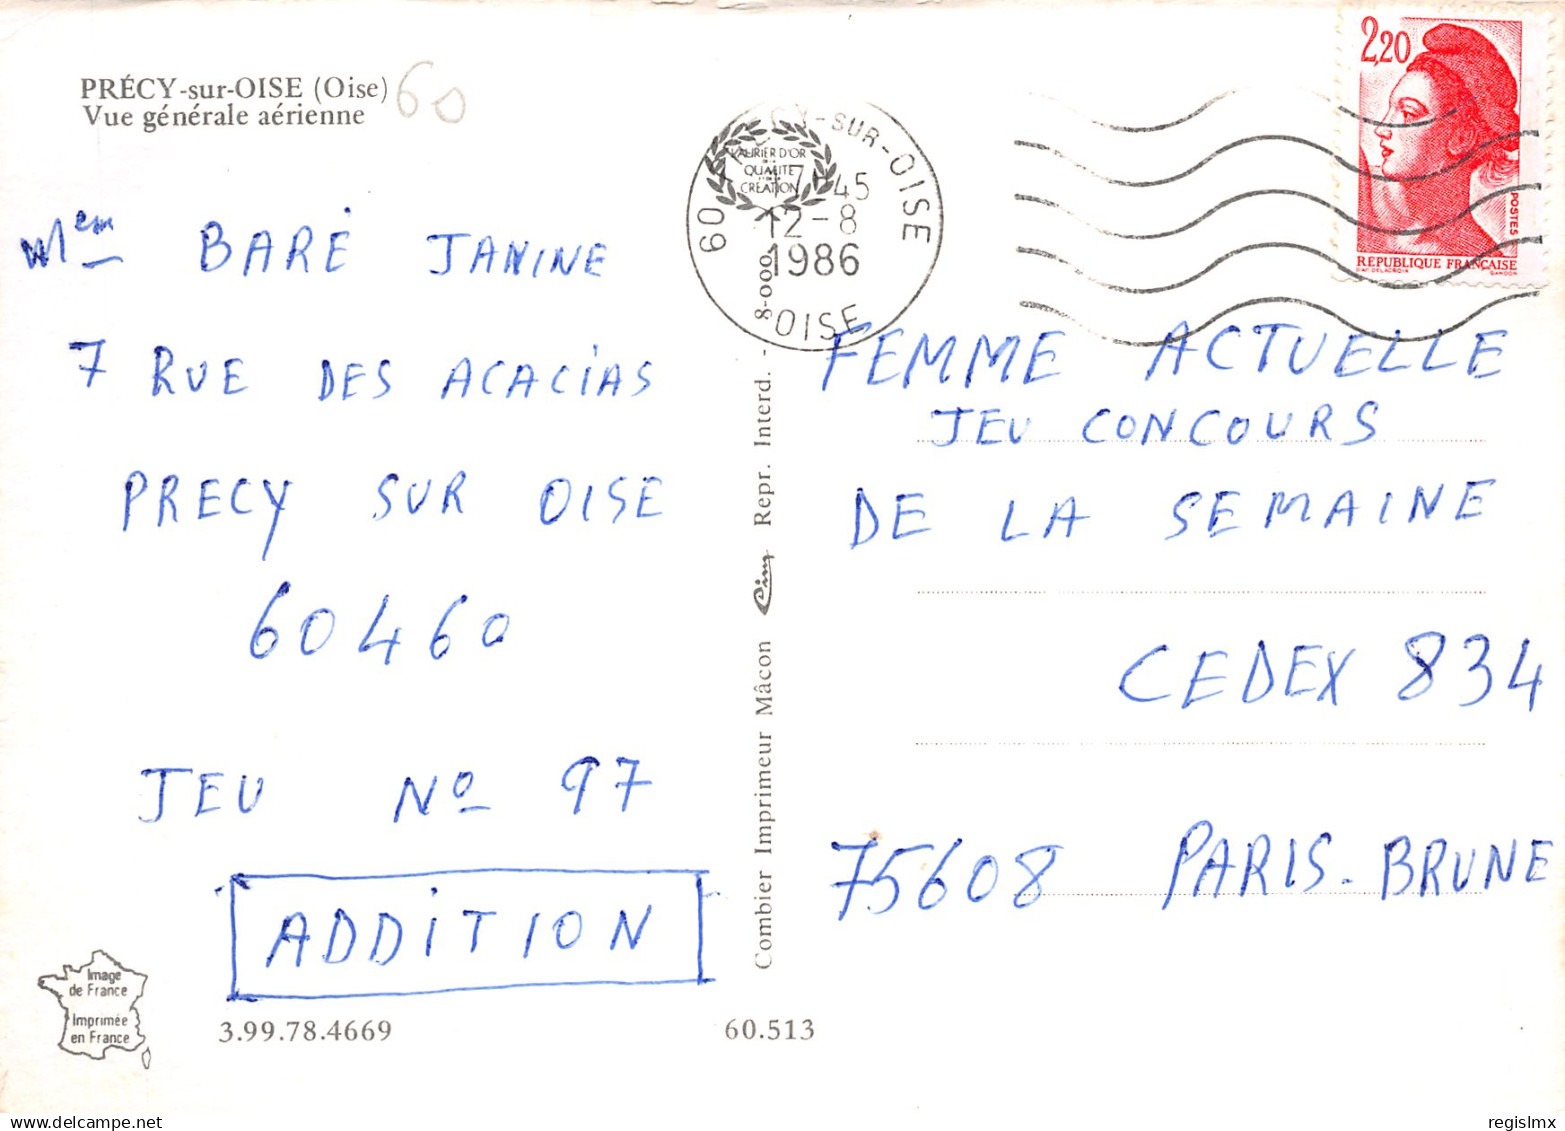 PRÉCY-sur-OISE (Oise) 60
Vue générale aérienne
Mlem BARÉ JANINE
7 RUE DES ACACIAS
PRECY SUR OISE
60460
JEU Nº 97
ADDITION
Image
de France
Imprimée
en France
3.99.78.4669
60.513
Combier Imprimeur Mâcon Cim Repr. Interd. - 8-000
LAURIER D'OR
QUALITÉ
CRÉATION
60 CY-SUR-OISE
17-45
12-8
1986
OISE
2,20
POSTES
RÉPUBLIQUE FRANÇAISE
D'AP. DELACROIX GANDON
FEMME ACTUELLE
JEU CONCOURS
DE LA SEMAINE
CEDEX 834
75608 PARIS-BRUNE
regislmx